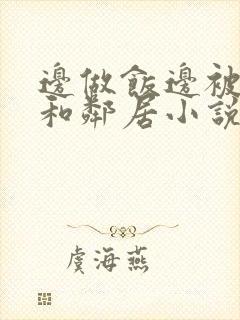 邊做飯邊被
和鄰居小說
虞海燕